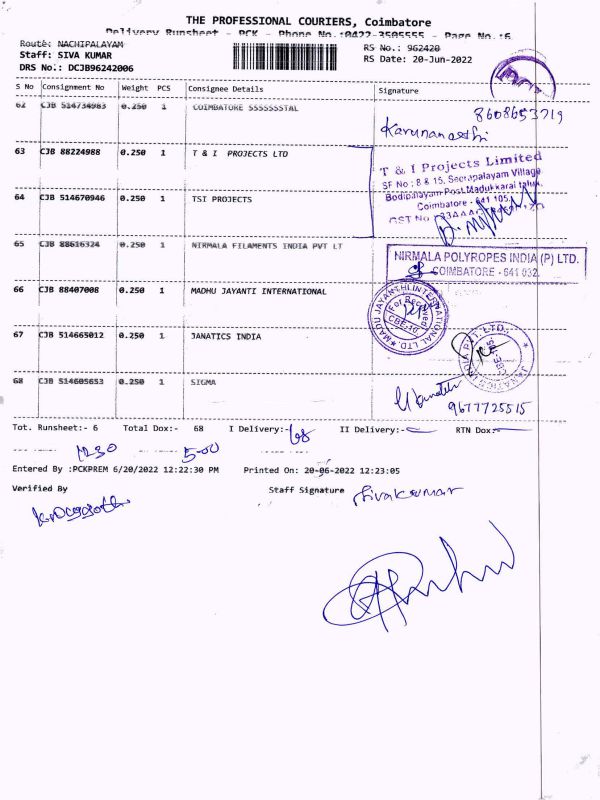 THE PROFESSIONAL COURIERS, Coimbatore
Delivery Runsheet - PCK - Phone No.:0422-3505555 - Page No.:6
Route: NACHIPALAYAM
Staff: SIVA KUMAR
DRS No.: DCJB96242006
RS No.: 962420
RS Date: 20-Jun-2022
S No Consignment No Weight PCS Consignee Details Signature
62 CJB 514734983 0.250 1 COIMBATORE SSSSSSSTAL
8608653719
Karunaneethi
63 CJB 88224988 0.250 1 T & I PROJECTS LTD
T & I Projects Limited
SF No : 8 & 15, Seerapalayam Village
Bodipalayam Post, Madukkarai taluk,
Coimbatore - 641 105.
GST No
64 CJB 514670946 0.250 1 TSI PROJECTS
65 CJB 88616324 0.250 1 NIRMALA FILAMENTS INDIA PVT LT
NIRMALA POLYROPES INDIA (P) LTD.
COIMBATORE - 641 032.
66 CJB 88407008 0.250 1 MADHU JAYANTI INTERNATIONAL
MADU JAYANTHI INTERNATIONAL LTD.
For Received
CBE-10.
67 CJB 514665012 0.250 1 JANATICS INDIA
JANATICS INDIA PVT. LTD.
68 CJB 514605653 0.250 1 SIGMA
9677725515
Tot. Runsheet:- 6 Total Dox:- 68 I Delivery:- 68 II Delivery:- RTN Dox:-
1230 5-00
Entered By :PCKPREM 6/20/2022 12:22:30 PM Printed On: 20-06-2022 12:23:05
Verified By Staff Signature Sivakumar